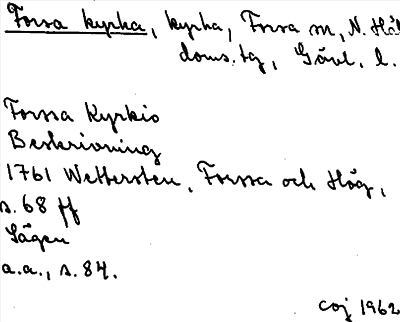 Forsa kyrka, kyrka, Forsa sn, N. Häl
doms. tg, Gävl. l.
Forssa Kyrkio
Beskrivning
1761 Wettersten, Forssa och Hög,
s. 68 ff
Sägen
a.a., s. 84.
coj 1962